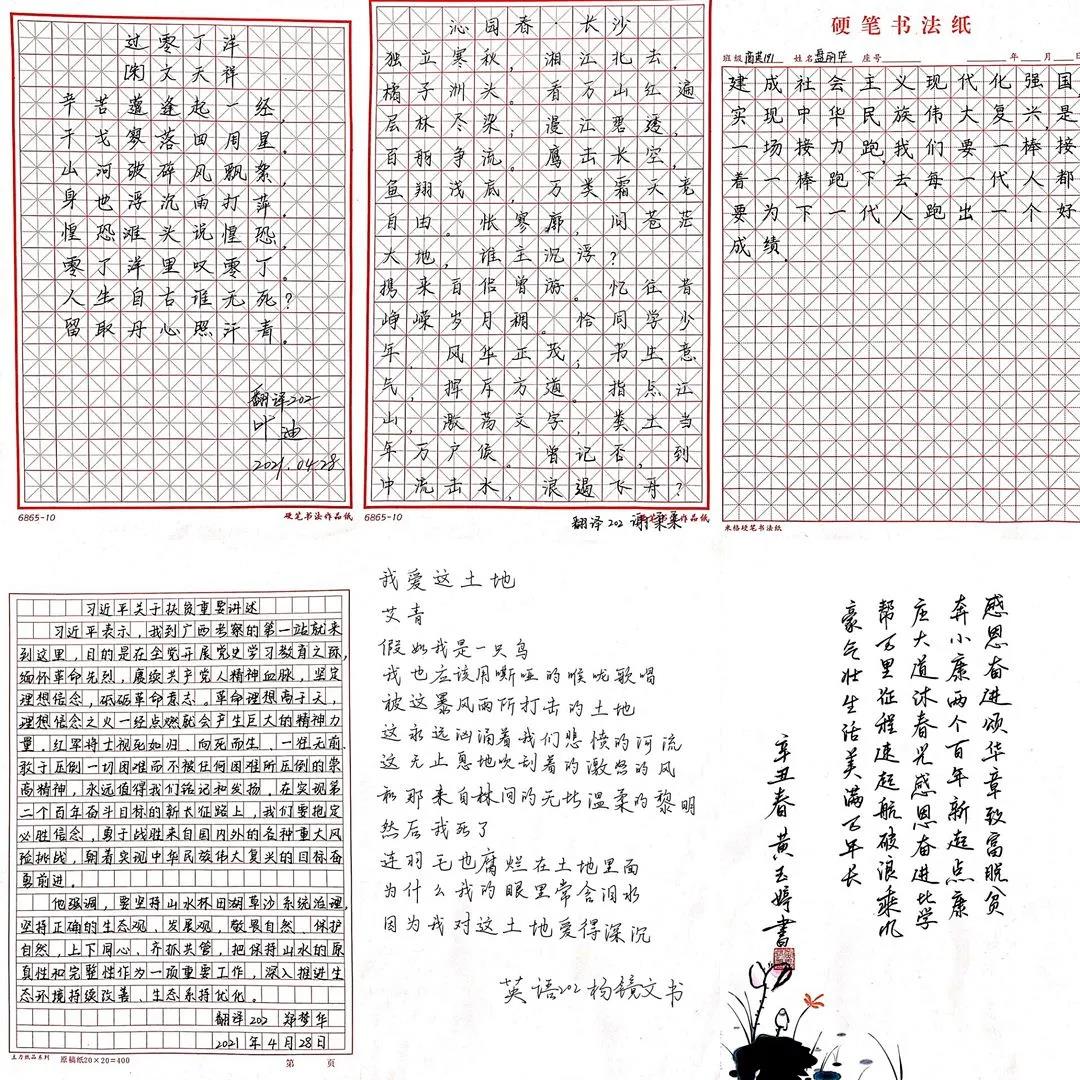 过零丁洋
[宋]文天祥
辛苦遭逢起一经,
干戈寥落四周星。
山河破碎风飘絮,
身世浮沉雨打萍。
惶恐滩头说惶恐,
零丁洋里叹零丁。
人生自古谁无死?
留取丹心照汗青。
翻译202
叶迪
2021.04.28.
6865-10 硬笔书法作品纸
沁园春·长沙
独立寒秋,湘江北去,
橘子洲头。看万山红遍
层林尽染;漫江碧透,
百舸争流。鹰击长空,
鱼翔浅底,万类霜天竞
自由。怅寥廓,问苍茫
大地,谁主沉浮?
携来百侣曾游。忆往昔
峥嵘岁月稠。恰同学少
年,风华正茂;书生意
气,挥斥方遒。指点江
山,激荡文字,粪土当
年万户侯。曾记否,到
中流击水,浪遏飞舟?
6865-10
翻译202 谢柔柔
硬笔书法纸
班级 商英191 姓名 座号 年 月 日
建成社会主义现代化强国,
实现中华民族伟大复兴,是
一场接力跑,我们要一棒接
着一棒跑下去,每一代人都
要为下一代人跑出一个好
成绩.
米格硬笔书法纸
习近平关于扶贫重要讲述
习近平表示,我到广西考察的第一站就来
到这里,目的是在全党开展党史学习教育之际,
缅怀革命先烈,赓续共产党人精神血脉,坚定
理想信念,砥砺革命意志。革命理想高于天,
理想信念之火一经点燃就会产生巨大的精神力
量。红军将士视死如归、向死而生、一往无前、
敢于压倒一切困难而不被任何困难所压倒的崇
高精神,永远值得我们铭记和发扬。在实现第
二个百年奋斗目标的新长征路上,我们要抱定
必胜信念,勇于战胜来自国内外的各种重大风
险挑战,朝着实现中华民族伟大复兴的目标奋
勇前进。
他强调,要坚持山水林田湖草沙系统治理,
坚持正确的生态观、发展观,敬畏自然、保护
自然,上下同心、齐抓共管,把保持山水的原
真性和完整性作为一项重要工作,深入推进生
态环境持续改善、生态系持优化。
翻译202 郑梦华
2021年4月28日
主力纸品系列 原稿纸20×20=400 第 页
我爱这土地
艾青
假如我是一只鸟
我也应该用嘶哑的喉咙歌唱
被这暴风雨所打击的土地
这永远汹涌着我们悲愤的河流
这无止息地吹刮着的激怒的风
和那来自林间的无比温柔的黎明
然后我死了
连羽毛也腐烂在土地里面
为什么我的眼里常含泪水
因为我对这土地爱得深沉
英语202 杨镜文书
感恩奋进颂华章致富脱贫
奔小康两个百年新起点康
庄大道沐春光感恩奋进比学
帮万里征程速起航破浪乘风
豪气壮生活美满万年长
辛丑春 黄玉婷書